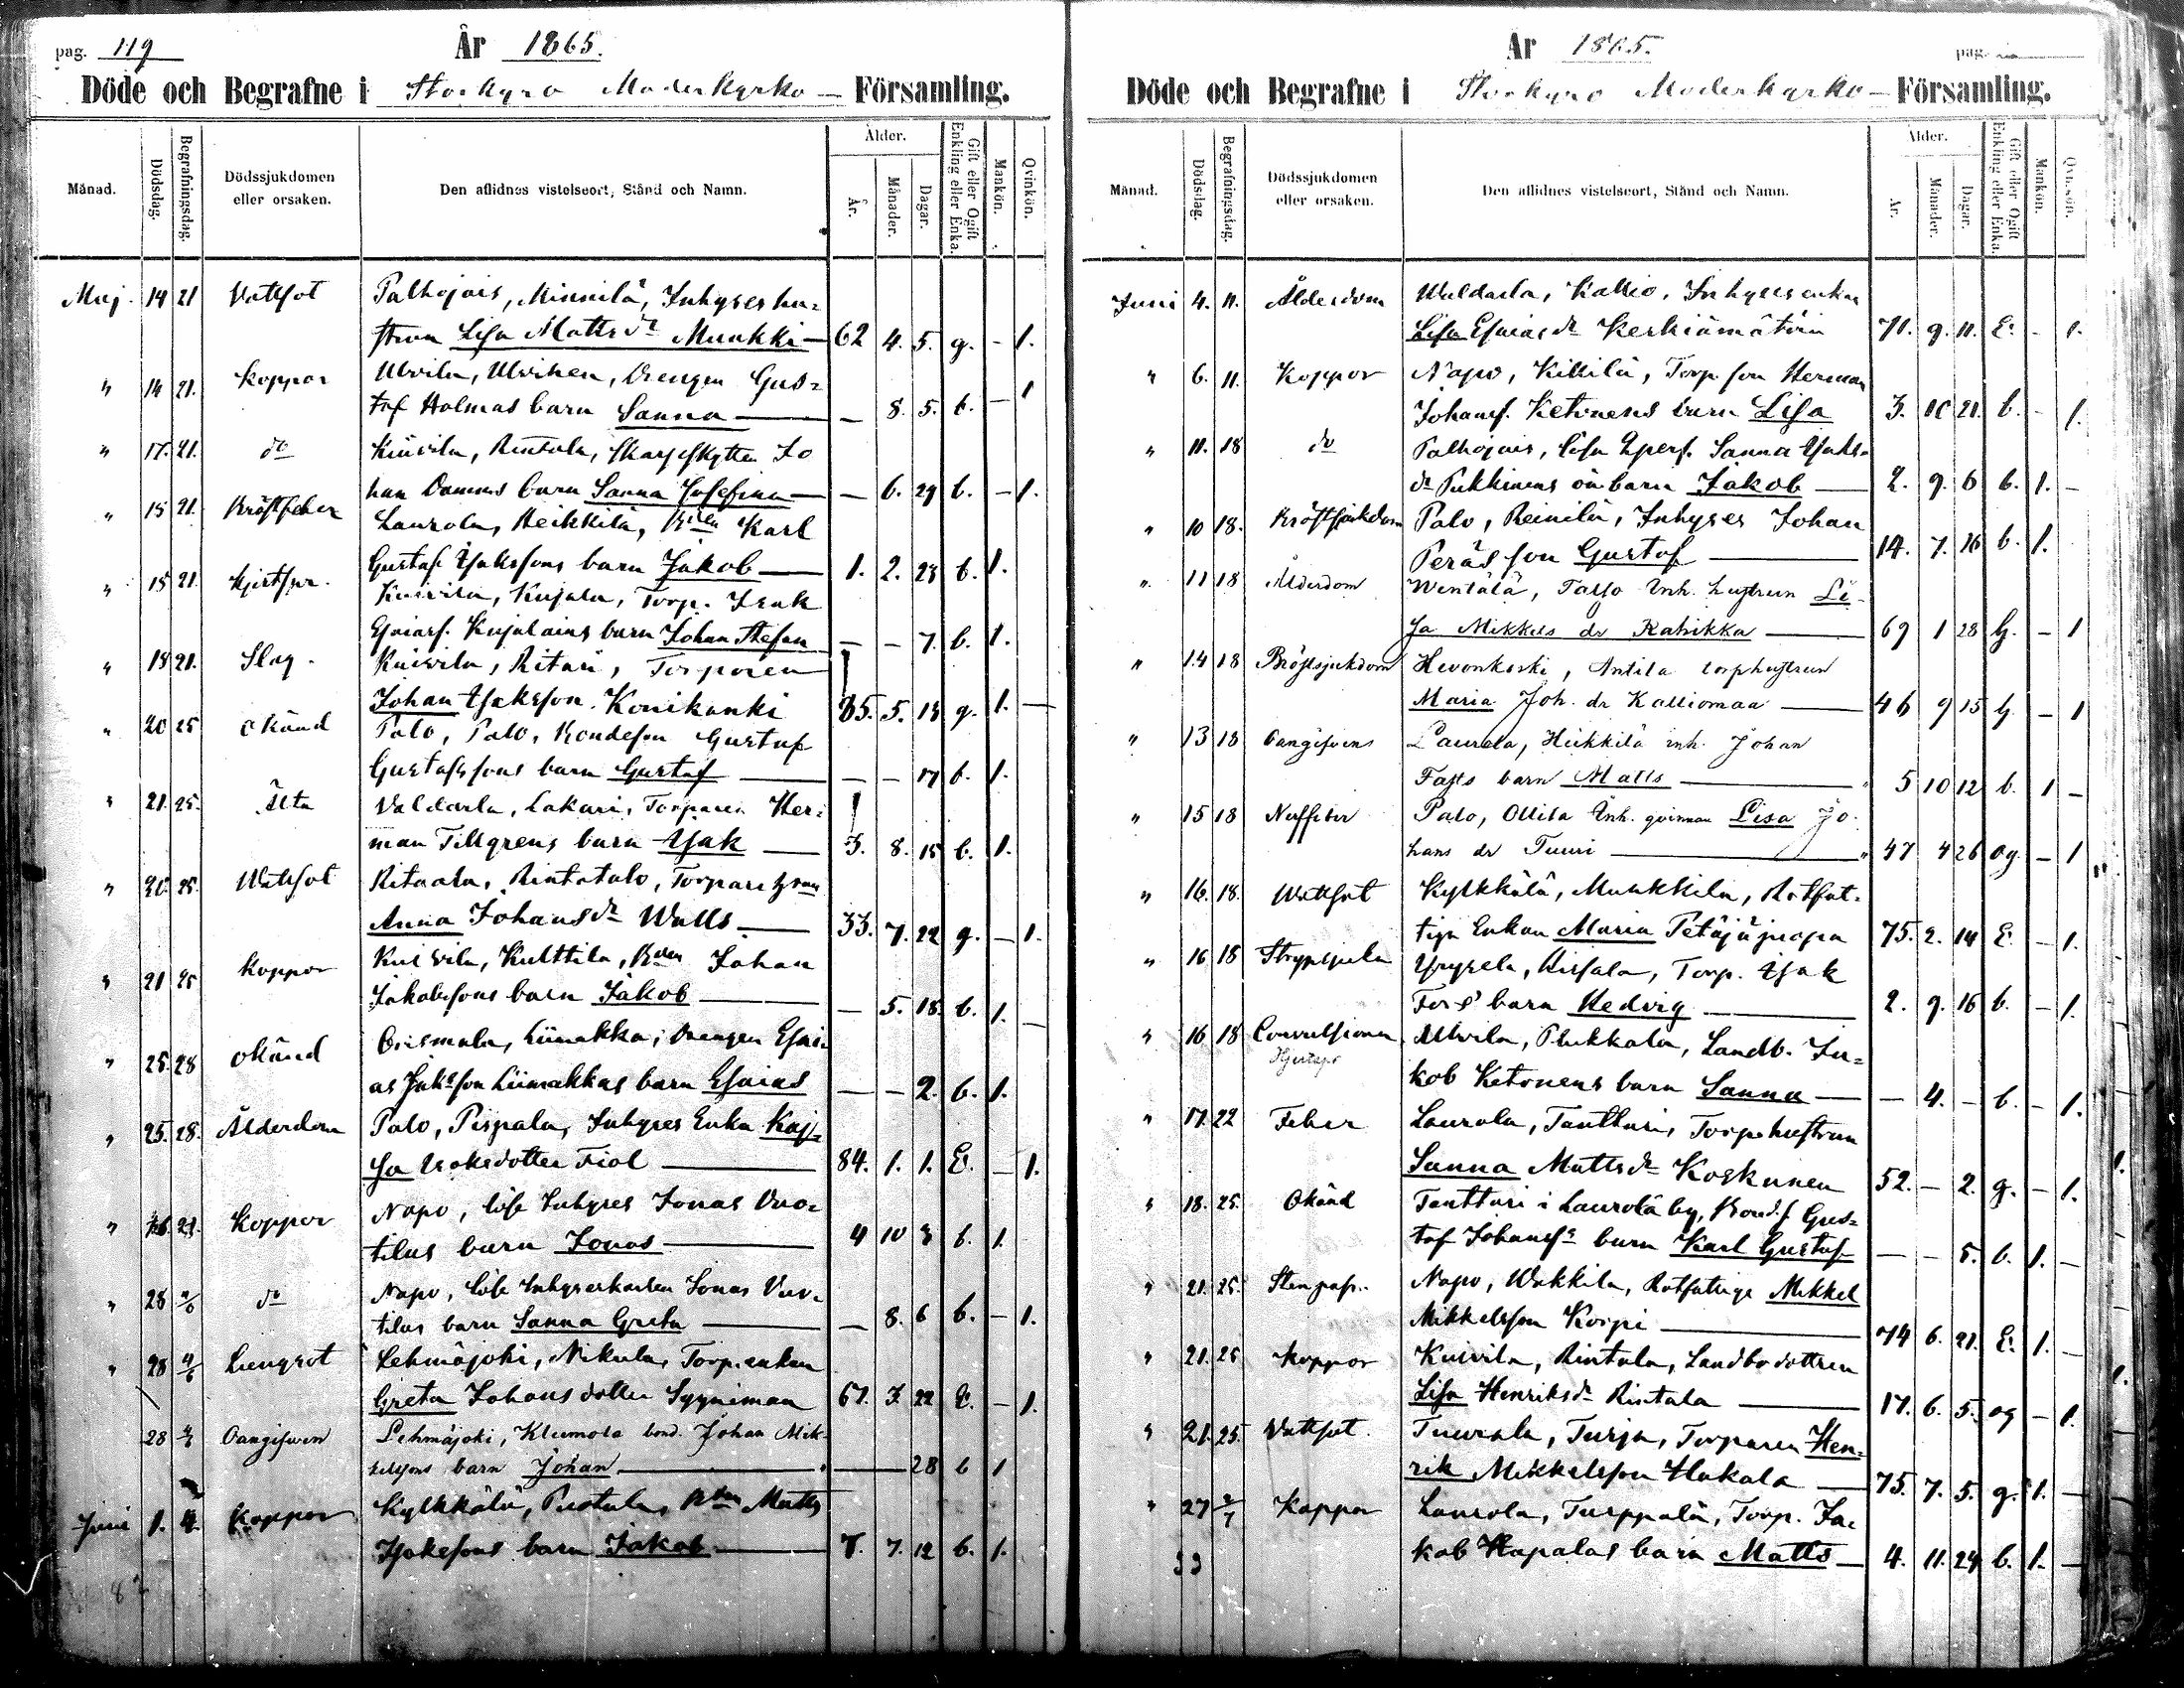 pag. 119
År 1865.
Döde och Begrafne i Storkyro Moderkyrko - Församling.
Månad.
Dödsdag.
Begrafningsdag.
Dödssjukdomen
eller orsaken.
Den aflidnes vistelseort, Stånd och Namn.
Ålder.
År.
Månader.
Dagar.
Gift eller Ogift
Enkling eller Enka.
Mankön.
Qvinkön.
Maj. 14 21 Vattsot Palhojais, Minnilä, Inhyses hu-
strun Lisa Matts dr Munkki 62 4. 5. g. - 1.
" 14 21. Koppor Ulvila, Ulvinen, Drengen Gus-
taf Holmas barn Sanna - 8. 5. b. - 1
" 17. 21. do Kuivila, Rintala, Skarpskytten Jo
han Damms barn Sanna Josefina - 6. 29 b. - 1.
" 15 21. Bröstfeber Laurola, Heikkilä, Karl
Gustaf Isakssons barn Jakob 1. 2. 23 b. 1.
" 15 21. Kuivila, Kujala, Torp. Isak
Esaiass. Kujalains barn Johan Stefan - - 7. b. 1.
" 18 21. Slag. Kuivila, Ritari, Torparen
Johan Isaksson Konikanki 65. 5. 18 g. 1. -
" 20 25 Okänd Palo, Palo, Bondeson Gustaf
Gustafssons barn Gustaf - - 17 b. 1.
" 21. 25. Ålta Valdarla, Lakari, Torparen Her-
man Tillgrens barn Isak 3. 8. 15 b. 1.
" 20. 25. Wattsot Ritaala, Rintatalo,
Anna Johans dr Walls 33. 7. 22 g. - 1.
" 21 25 Koppor Kuivila, Kulttila, Johan
Jakobssons barn Jakob - 5. 18. b. 1. -
" 25. 28 Okänd Orismala, Liimakka, Drengen Esai-
as Jakobson Liimakkas barn Esaias - - 2. b. 1.
" 25. 28. Ålderdom Palo, Pispala, Inhyses Enka Kaj-
sa Isaksdotter Fiol 84. 1. 1. E. - 1.
" 26. 28. Koppor Napo, lösa Inhyses Jonas Vuo-
tilas barn Jonas 4 10 3 b. 1.
" 28 4/6 do Napo, lösa Inhyseskarlen Jonas Vuo-
tilas barn Sanna Greta - 8. 6 b. - 1.
" 28 4/6 Lungsot Lehmäjoki, Nikula, Torp.enkan
Greta Johansdotter Syyniman 67. 3 22 E. - 1.
28 4/6 Oangifven Lehmäjoki, Klemola bond. Johan Mik-
kelssons barn Johan - - 28 b 1
Juni 1. 4. Koppor Kylkkälä, Matts
Isakssons barn Jakob 7. 7. 12 b. 1.
År 1865.
pag.
Döde och Begrafne i Storkyro Moderkyrko - Församling.
Månad.
Dödsdag.
Begrafningsdag.
Dödssjukdomen
eller orsaken.
Den aflidnes vistelseort, Stånd och Namn.
Ålder.
År.
Månader.
Dagar.
Gift eller Ogift
Enkling eller Enka.
Mankön.
Qvinkön.
Juni 4. 11. Ålderdom Waldarla, Kallio, Inhyses enkan
Lisa Esaias dr Keskiämätöin 71. 9. 11. E. - 1.
" 6. 11. Koppor Napo, Killilä, Torp. son Herman
Johanss. Ketonens barn Lisa 3. 10 21. b. - 1.
" 11. 18 do Palhojais, lösa Qpers. Sanna Isaks-
dr Pukkinens oä barn Jakob 2. 9. 6 b. 1. -
" 10 18. Bröstsjukdom Palo, Reinilä, Inhyses Johan
Peräs son Gustaf 14. 7. 26 b. 1.
" 11 18 Ålderdom Wentälä, Tasso Inh. hustrun Li-
sa Mikkels dr Rahikka 69 1 28 G. - 1
" 14 18 Bröstsjukdom Hevonkoski, Antila torphustrun
Maria Joh. dr Kalliomaa 46 9 15 G. - 1
" 13 18 Oangifvens Laurola, Heikkilä inh. Johan
Fasts barn Matts 5 10 12 b. 1 -
" 15 18 Nerffeber Palo, Ollila Inh. qvinnan Lisa Jo-
hans dr Tuuri 47 4 26 og - 1
" 16. 18. Wattsot Kylkkälä, Munkkila, Rotfat-
tiga Enkan Maria Petäjäjuopa 75. 2. 14 E. - 1.
" 16 18 Strypsjuka Yryselä, Kissala, Torp. Isak
Fors' barn Hedvig 2. 9. 16 b. - 1.
" 16 18 Convulsioner Ulvila, Pukkala, Landb. Ja-
kob Ketonens barn Sanna - 4. - b. - 1.
" 17. 22 Feber Laurola, Tantturi, Torpehustrun
Sanna Matts dr Koskunen 52. - 2. g. - 1.
" 18. 25. Okänd Tantturi i Laurola by, Bond.s Gus-
taf Johanss barn Karl Gustaf - - 5. b. 1. -
" 21. 25. Stenpass. Napo, Wakkila, Rotfattige Mikkel
Mikkelsson Korpi 74 6. 21. E. 1. -
" 21. 25 Koppor Kuivila, Rintala, Landbodottren
Lisa Henriksdr Rintala 17. 6. 5. og - 1.
" 21. 25. Vattsot. Tuurala, Turja, Torparen Hen-
rik Mikkelsson Hakala 75. 7. 5. g. 1. -
" 27 2/7 Koppor Laurola, Turppala, Torp. Ja-
kob Hapalas barn Matts 4. 11. 24 b. 1. -
33